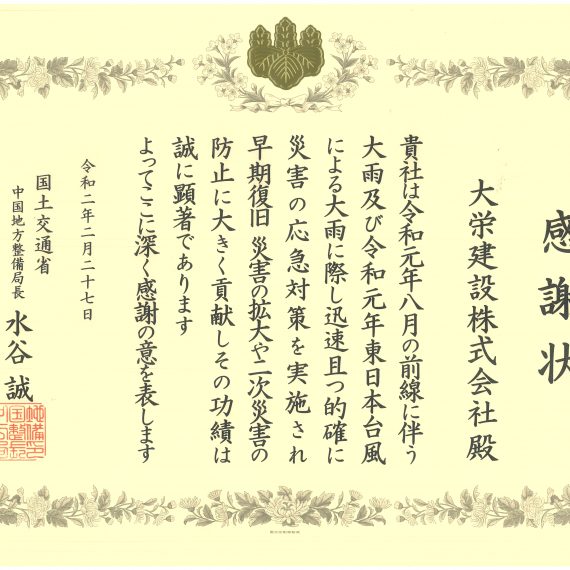 感謝状
大栄建設株式会社殿
貴社は令和元年八月の前線に伴う
大雨及び令和元年東日本台風
による大雨に際し迅速且つ的確に
災害の応急対策を実施され
早期復旧 災害の拡大や二次災害の
防止に大きく貢献しその功績は
誠に顕著であります
よってここに深く感謝の意を表します
令和二年二月二十七日
国土交通省
中国地方整備局長 水谷 誠